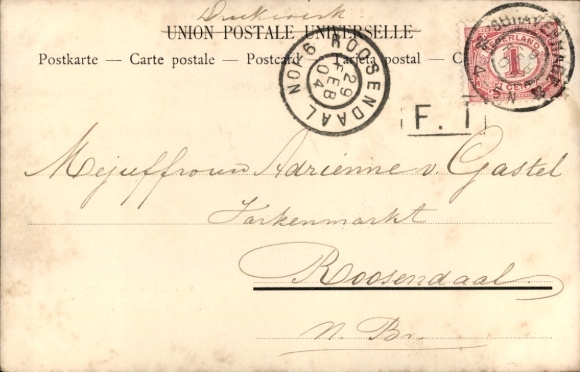 Drukwerk
UNION POSTALE UNIVERSELLE
Postkarte — Carte postale — Postcard — Tarjeta postal — C
ROOSENDAAL
29
FEB
04
NEDERLAND
1
CENT
F. 1
Mejuffrouw Adriënne v. Gastel
Varkenmarkt
Roosendaal
N. Br.